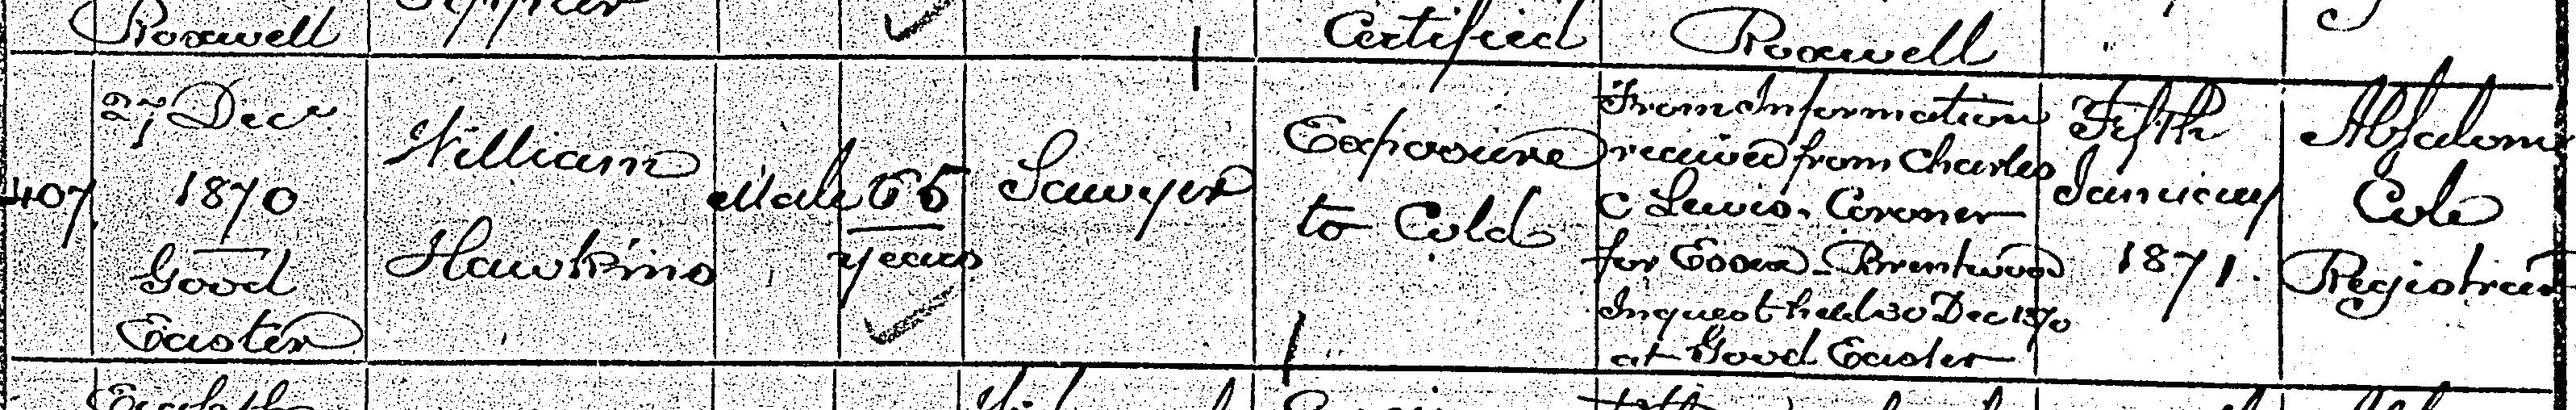 Roxwell
Certified
Roxwell
407
27 Decr
1870
Good
Easter
William
Hawkins
Male
65
years
Sawyer
Exposure
to Cold
From Information
received from Charles
C Lewis. Coroner
for Essex. Brentwood
Inquest held 30 Dec 1870
at Good Easter
Fifth
January
1871.
Absalom
Cole
Registrar